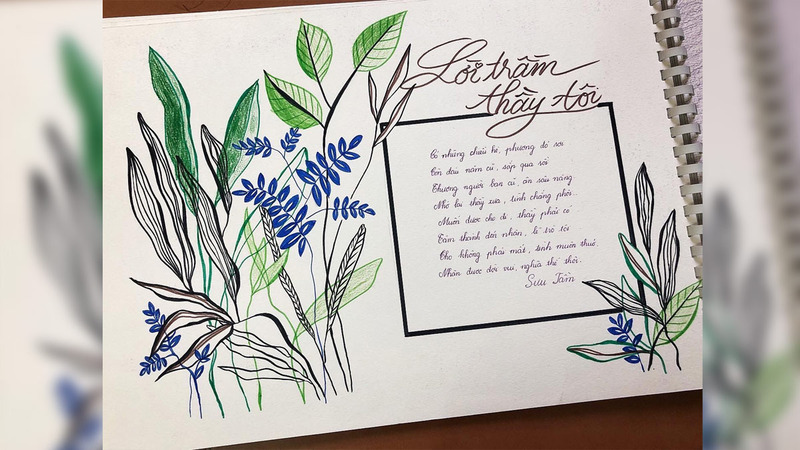 Lời trầm
thầy tôi
Có những chiều hè, phượng đỏ rơi
Còn đâu năm cũ, sắp qua rồi
Thương người bạn cũ, ân sâu nặng
Nhớ lại thầy xưa, tình chẳng phôi
Muốn được cho đi, thầy phải có
Tâm thành đời nhân, lẽ
Cho không phải mất, tình muôn thuở
Nhận được đời vui, nghĩa thế thôi.
Sưu Tầm